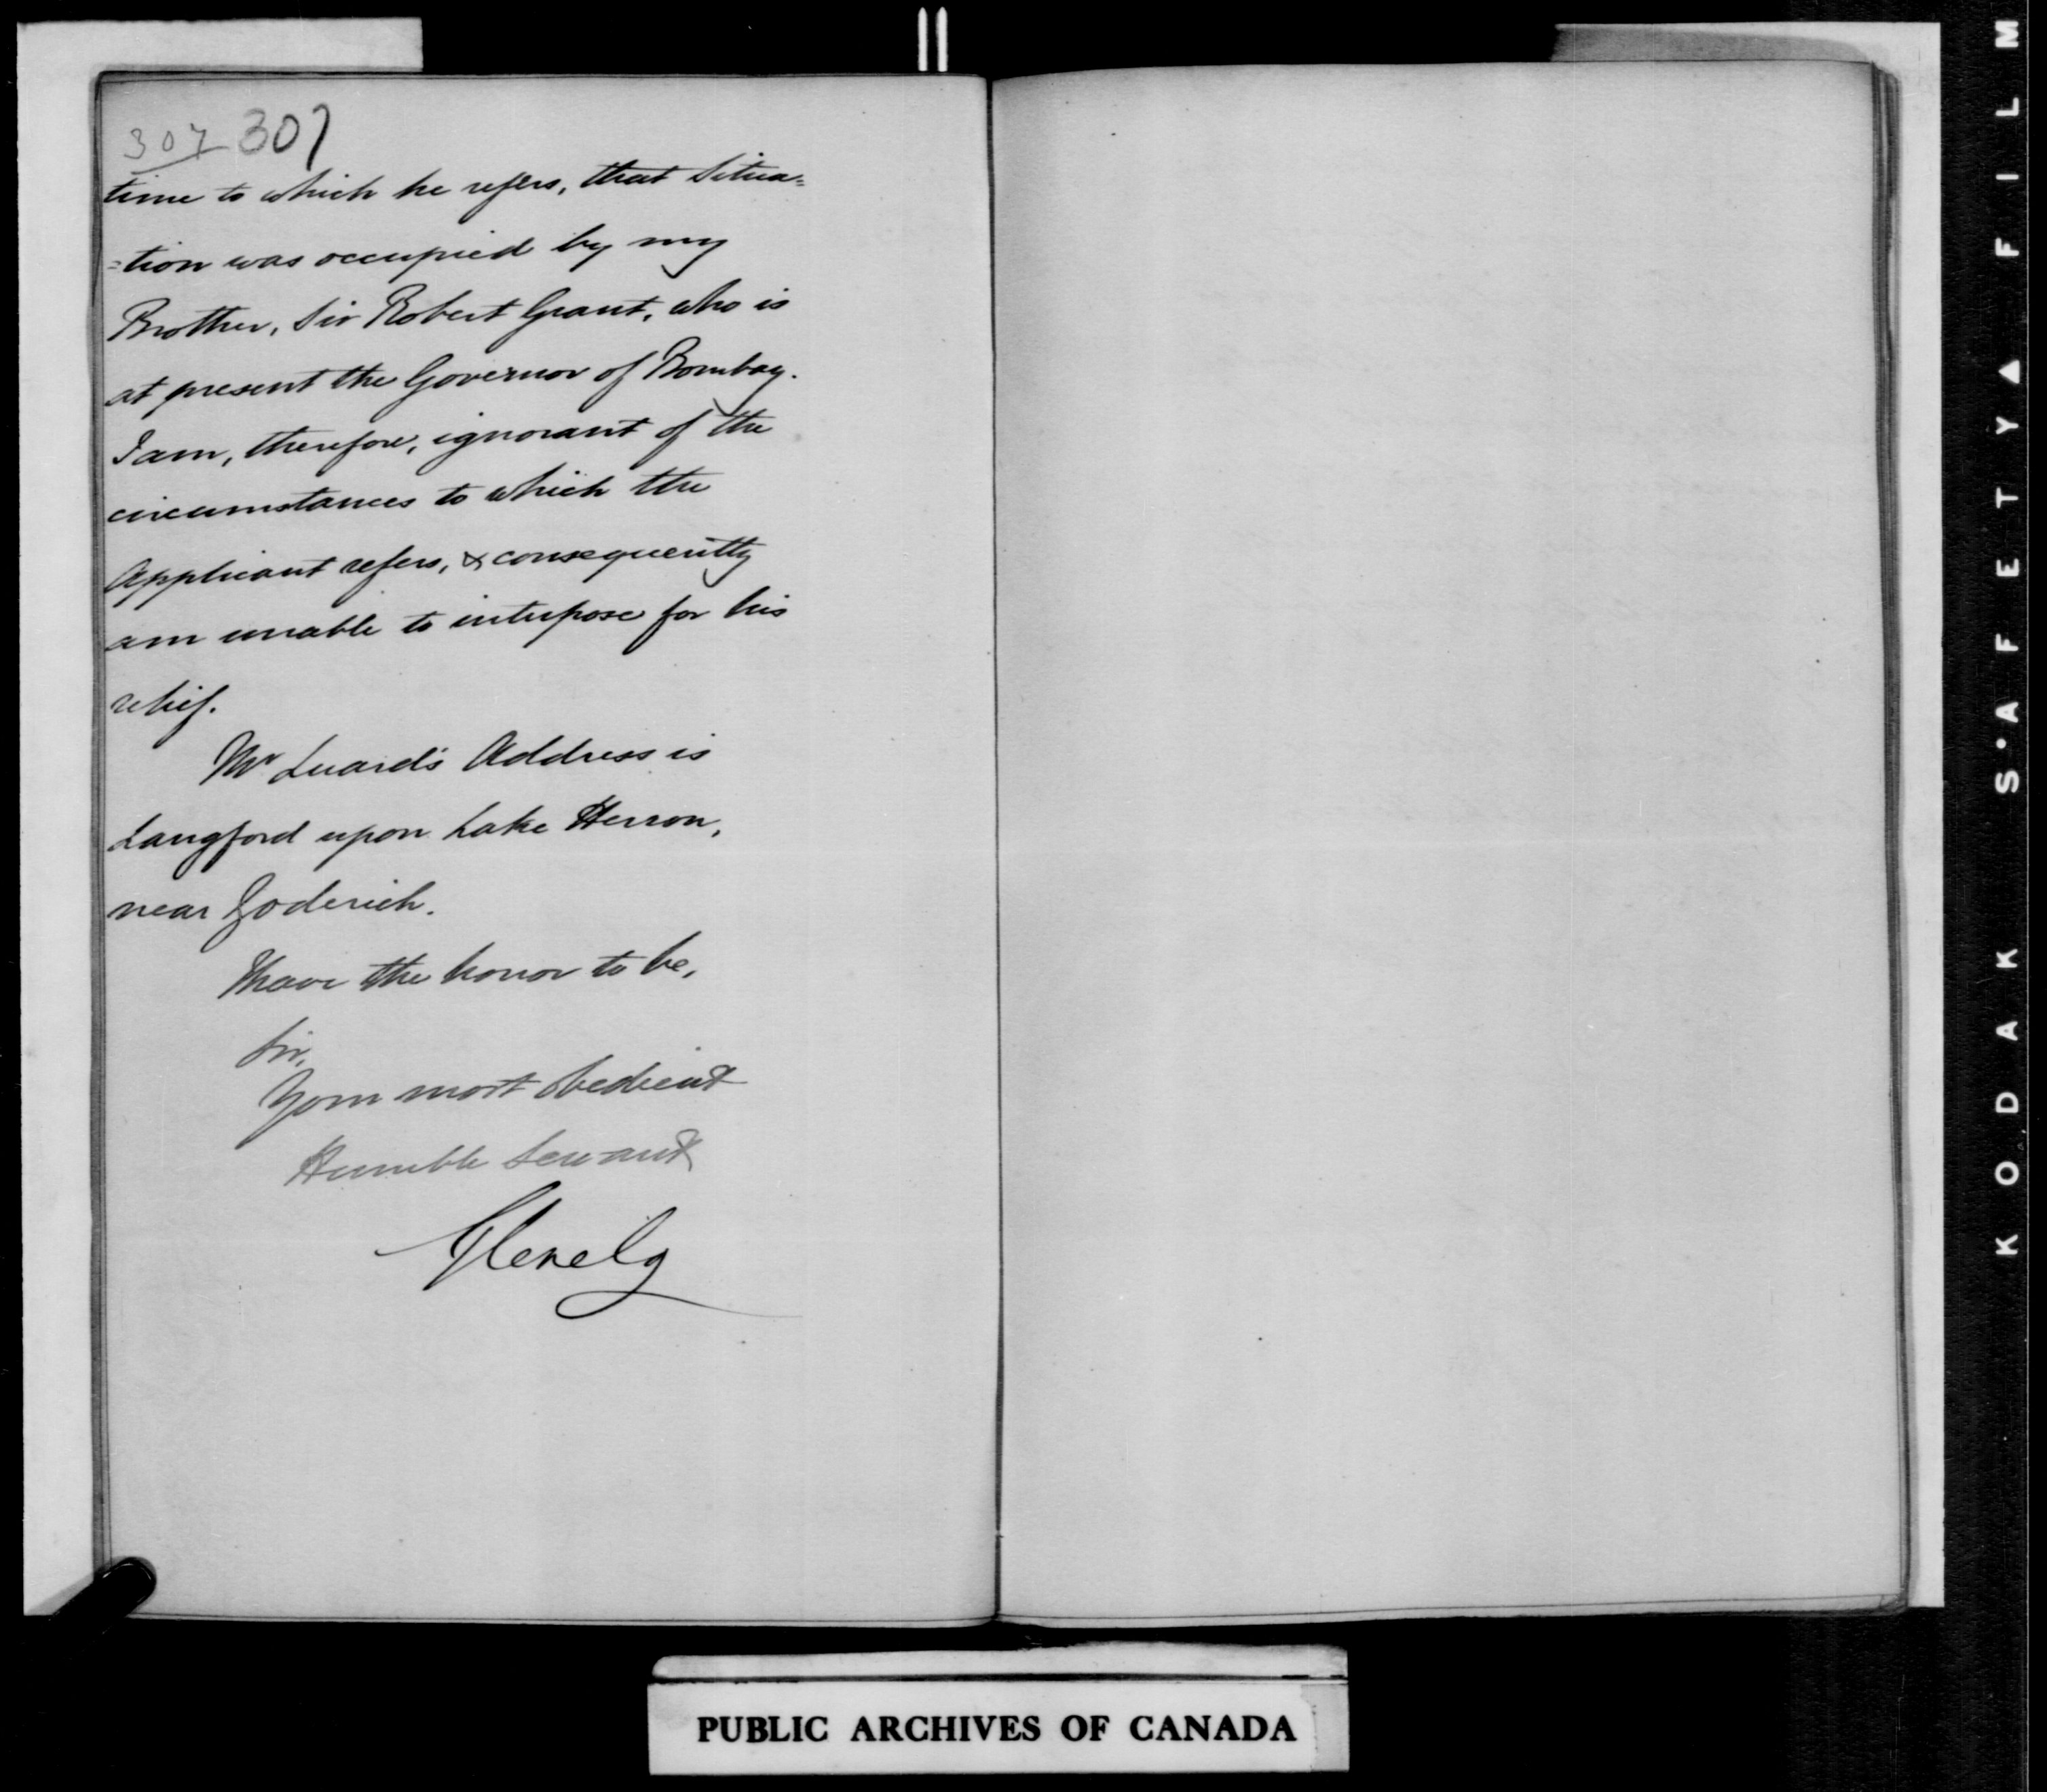 307 307
time to which he refers, that Situa=
=tion was occupied by my
Brother, Sir Robert Grant, who is
at present the Governor of Bombay.
I am, therefore, ignorant of the
circumstances to which the
Applicant refers, & consequently
am unable to interpose for his
relief.
Mr Luard's Address is
Langford upon Lake Herron,
near Goderich.
I have the honor to be,
Sir,
Your most obedient
Humble Servant
Glenelg
PUBLIC ARCHIVES OF CANADA
KODAK S·AFETY▲FILM